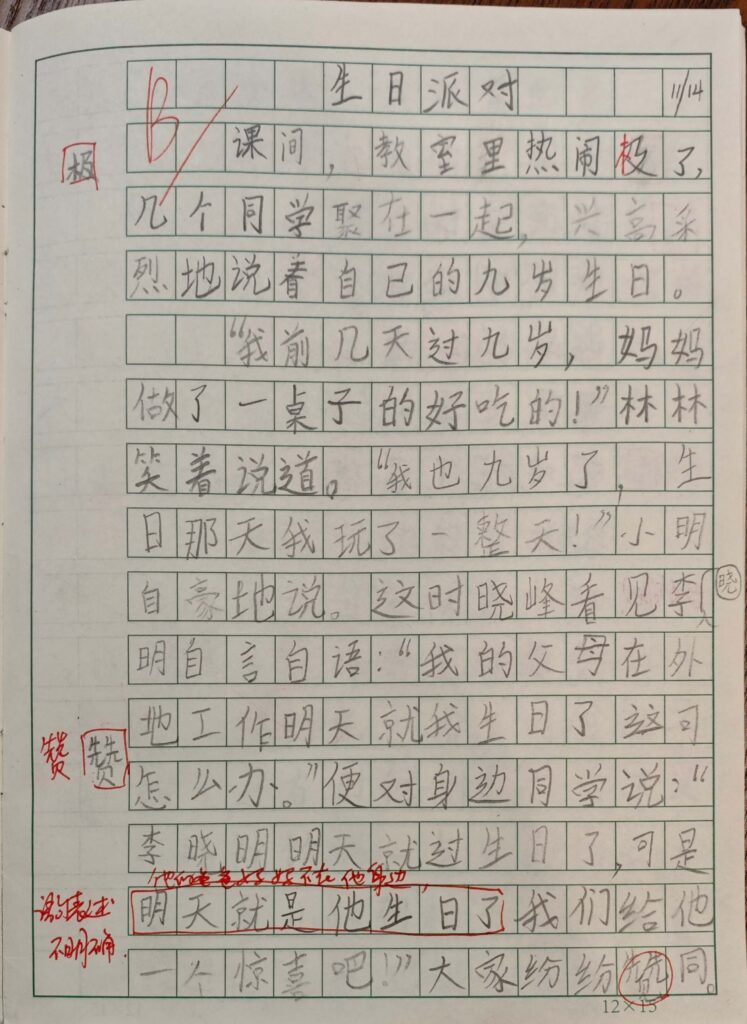 B
生日派对 11/14
极
课间，教室里热闹极了，
几个同学聚在一起，兴高采
烈地说着自已的九岁生日。
“我前几天过九岁，妈妈
做了一桌子的好吃的！”林林
笑着说道。“我也九岁了，生
日那天我玩了一整天！”小明
自豪地说。这时晓峰看见李
晓
明自言自语：“我的父母在外
地工作明天就我生日了这可
赞 赞
怎么办。”便对身边同学说：“
李晓明明天就过生日了，可是
他的爸爸妈妈不在他身边，
明天就是他生日了我们给他
表述
不明确．
一个惊喜吧！”大家纷纷赞同。
12×15